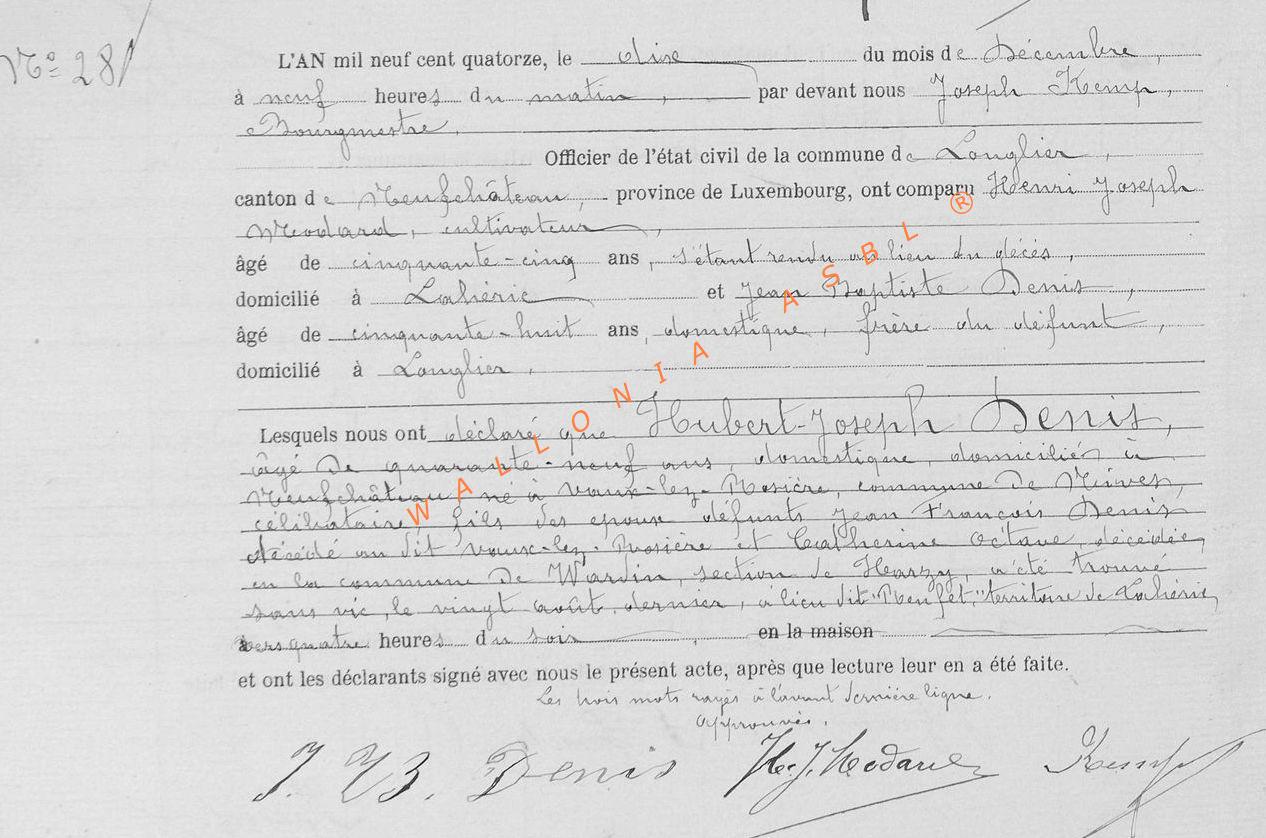 No 28
L'AN mil neuf cent quatorze, le dix du mois de Décembre,
à neuf heures du matin, par devant nous Joseph Kemp,
Bourgmestre,
Officier de l'état civil de la commune de Longlier,
canton de Neufchâteau, province de Luxembourg, ont comparu Henri Joseph
Modard, cultivateur,
âgé de cinquante-cinq ans, s'étant rendu au lieu du décès,
domicilié à Lahérie et Jean Baptiste Denis,
âgé de cinquante-huit ans, domestique, frère du défunt,
domicilié à Longlier.
Lesquels nous ont déclaré que Hubert-Joseph Denis,
âgé de quarante-neuf ans, domestique domicilié à
Neufchâteau né à Vaux-lez-Rosière, commune de Nives,
célibataire, fils des époux défunts Jean François Denis
décédé au dit Vaux-lez-Rosière et Catherine Octave, décédée
en la commune de Wardin, section de Harzy, a été trouvé
sans vie, le vingt août dernier, à lieu dit territoire de Lahérie,
vers quatre heures du soir, en la maison
et ont les déclarants signé avec nous le présent acte, après que lecture leur en a été faite.
Les trois mots rayés à l'avant dernière ligne.
approuvés.
J. B. Denis H. J. Modard Kemp
WALLONIA ASBL ®